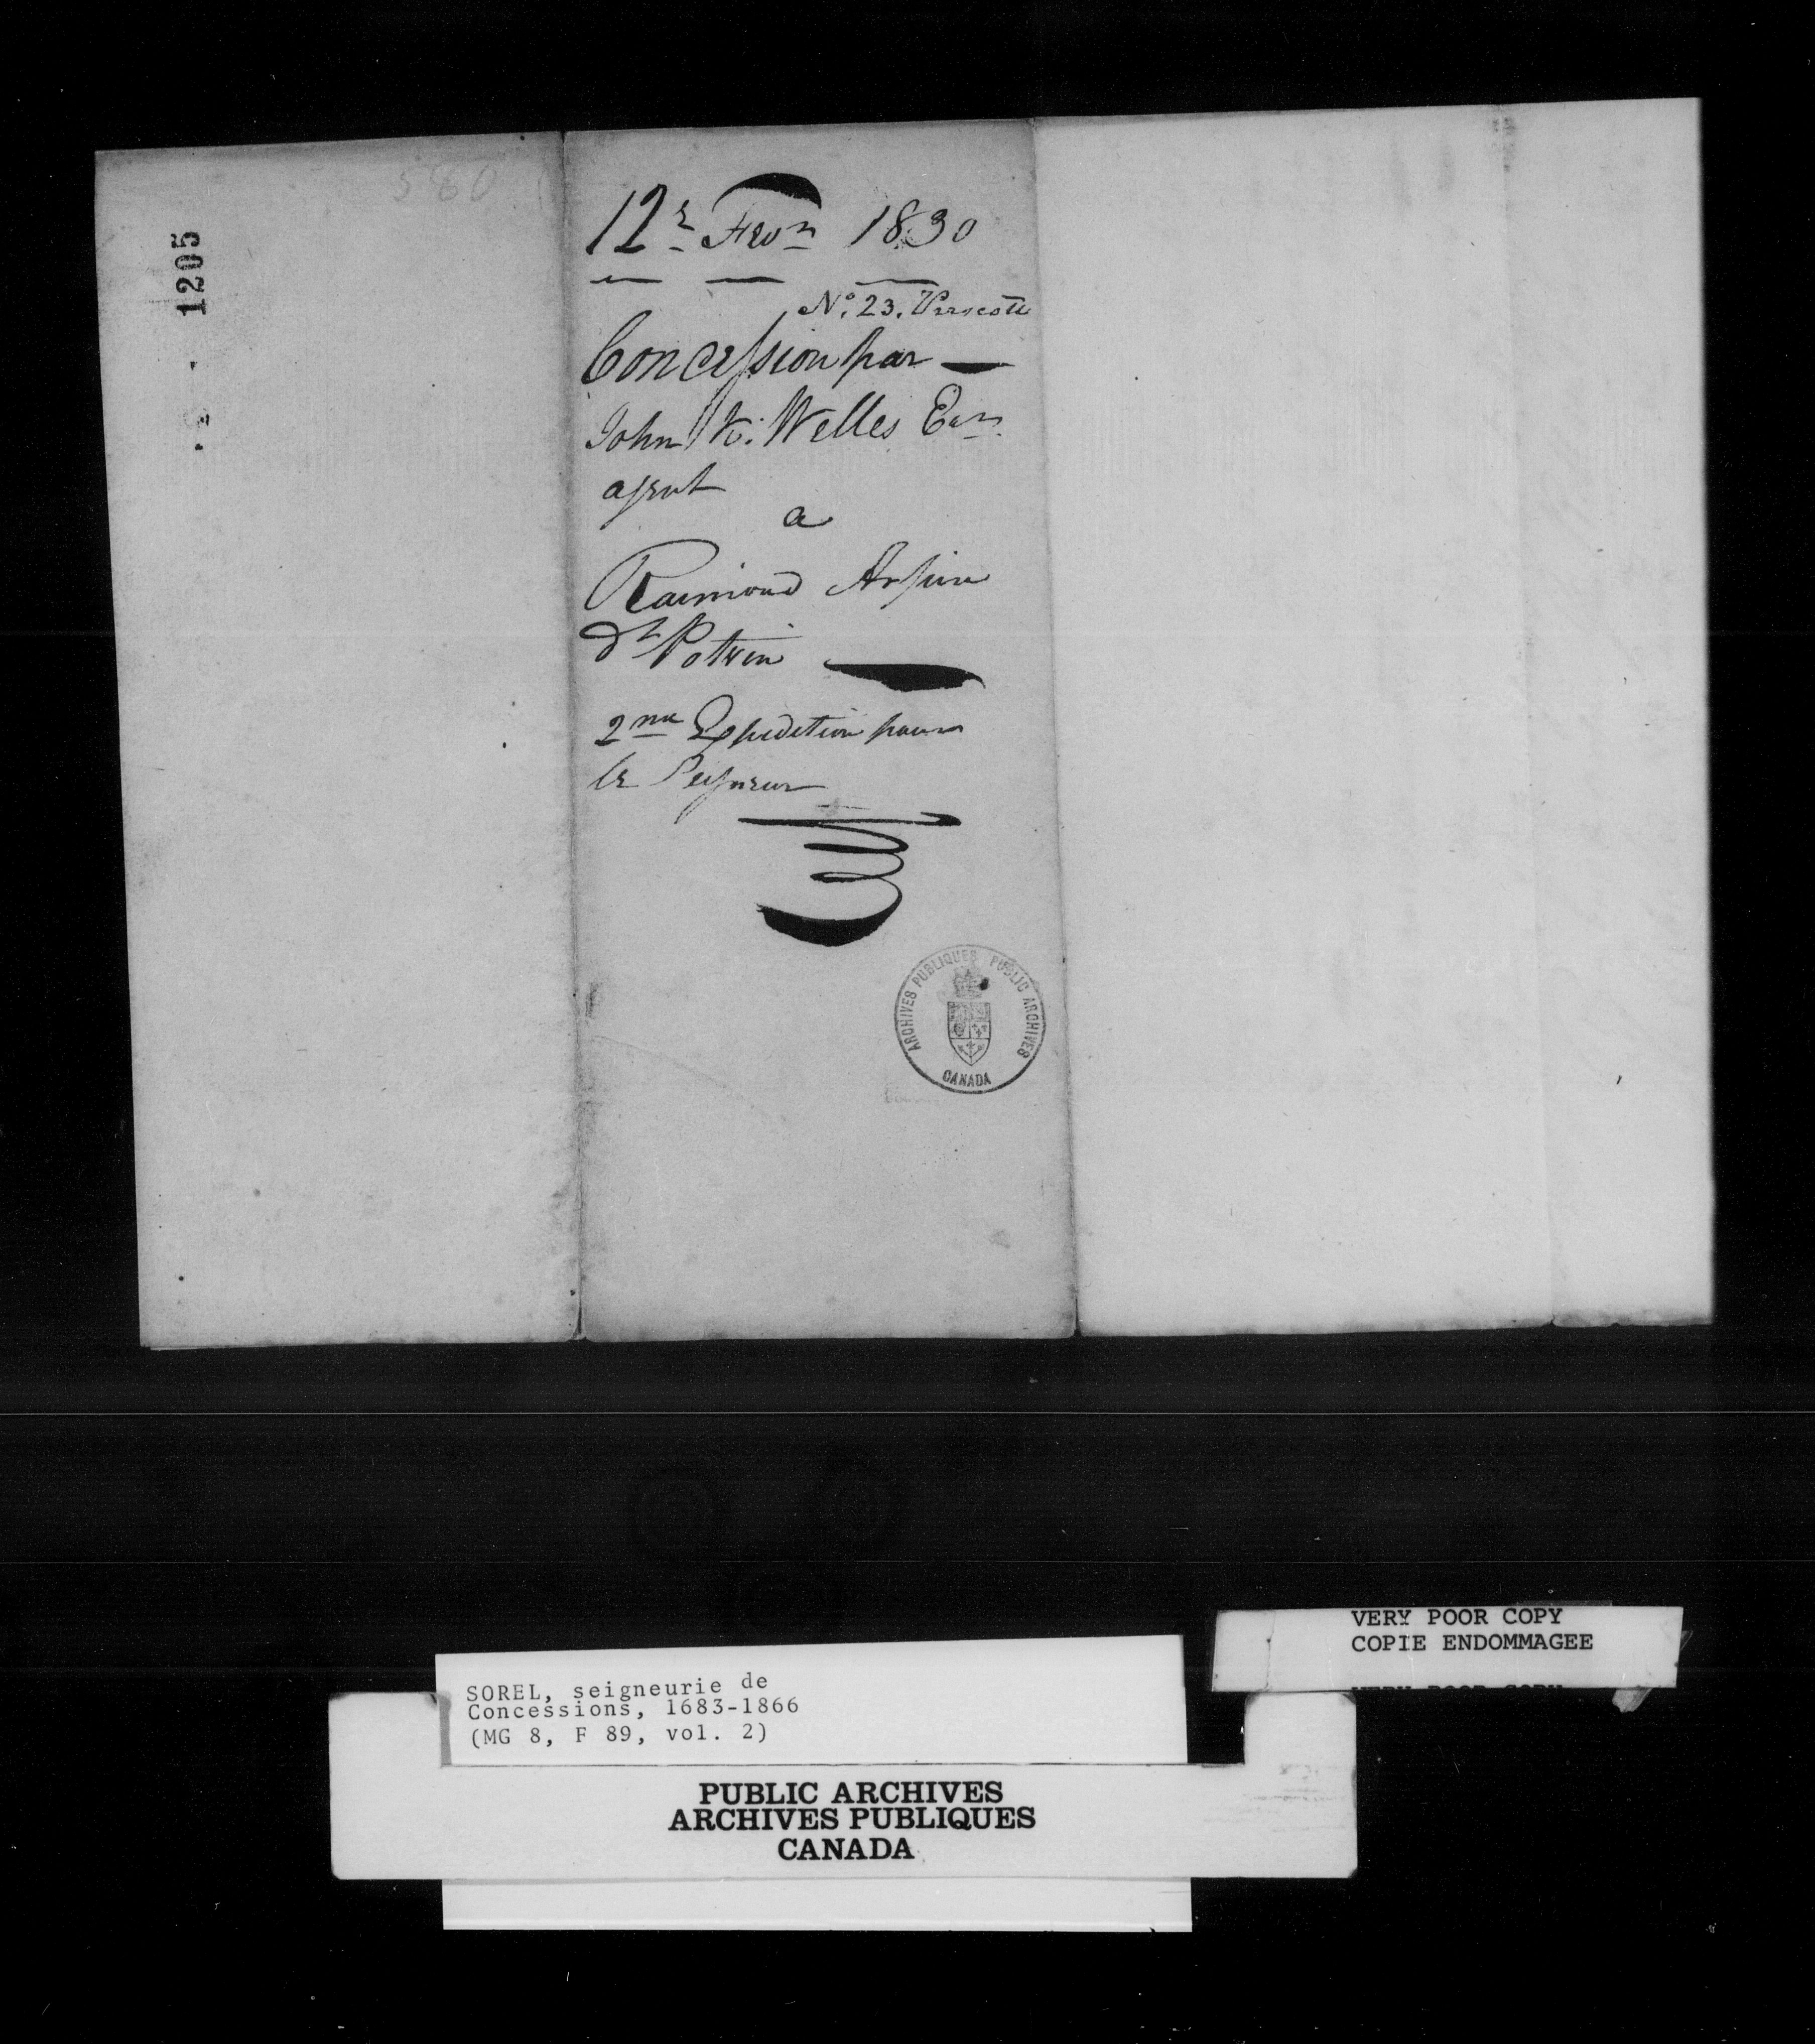 580
1205
12e Fevr 1830
No. 23. Prescott
Concession par
John K. Welles Ecr
agent
a
Raimond Arpin
dt Potvin
2me Expedition pour
le Seigneur
ARCHIVES PUBLIQUES PUBLIC ARCHIVES
CANADA
VERY POOR COPY
COPIE ENDOMMAGEE
VERY POOR COPY
SOREL, seigneurie de
Concessions, 1683-1866
(MG 8, F 89, vol. 2)
PUBLIC ARCHIVES
ARCHIVES PUBLIQUES
CANADA